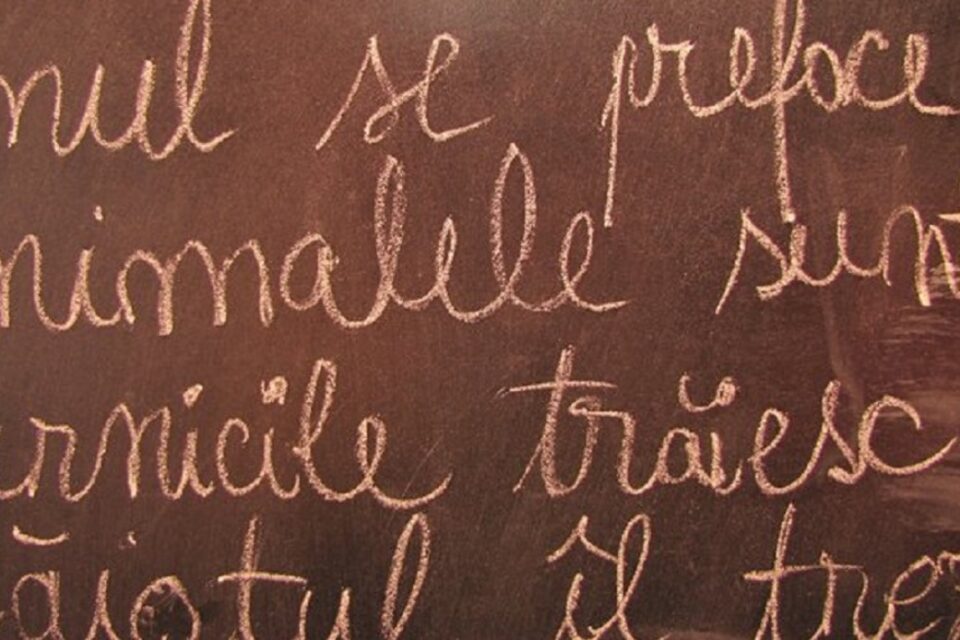 nul se preface
nimalele sunt
urnicile trăiesc
ăiatul îl tre